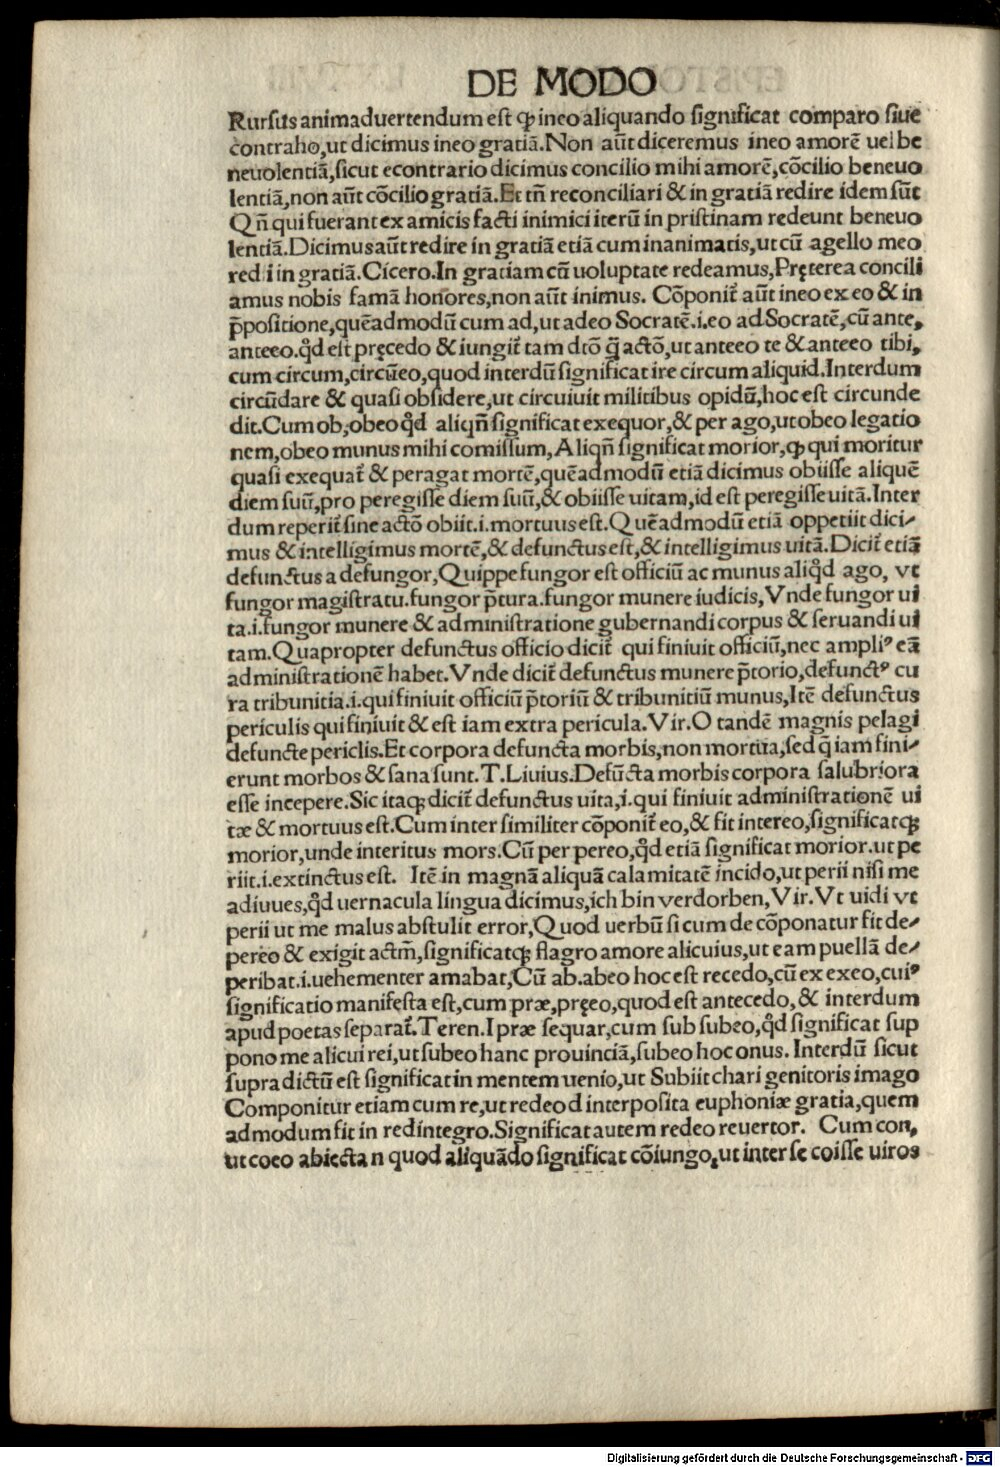 DE MODO
Rursus animaduertendum est ꝙ ineo aliquando significat comparo siue
contraho,ut dicimus ineo gratiã.Non aũt diceremus ineo amorẽ uel be
neuolentiã,sicut econtrario dicimus concilio mihi amorẽ,cõcilio beneuo
lentiã,non aũt cõcilio gratiã.Et tñ reconciliari & in gratiã redire idem sũt
Qñ qui fuerant ex amicis facti inimici iterũ in pristinam redeunt beneuo
lentiã.Dicimus aũt redire in gratiã etiã cum inanimatis,ut cũ agello meo
redii in gratiã.Cicero.In gratiam cũ uoluptate redeamus,Pręterea concili
amus nobis famã honores,non aũt inimus. Cõponit̃ aũt ineo ex eo & in
p̃positione,quẽadmodũ cum ad,ut adeo Socratẽ.i.eo ad Socratẽ,cũ ante,
anteeo.qd̓ est pręcedo & iungit̃ tam dtõ q̃ actõ,ut anteeo te & anteeo tibi,
cum circum,circũeo,quod interdũ significat ire circum aliquid.Interdum
circũdare & quasi obsidere,ut circuiuit militibus opidũ,hoc est circunde
dit.Cum ob,obeo qd̓ aliqñ significat exequor,& per ago,ut obeo legatio
nem,obeo munus mihi comissum,Aliqñ significat morior,ꝙ qui moritur
quasi exequat̃ & peragat mortẽ,quẽadmodũ etiã dicimus obiisse aliquẽ
diem suũ,pro peregisse diem suũ,& obiisse uitam,id est peregisse uitã.Inter
dum reperit̃ sine actõ obiit.i.mortuus est.Quẽadmodũ etiã oppetiit dici⸗
mus & intelligimus mortẽ,& defunctus est,& intelligimus uitã.Dicit̃ etiã
defunctus a defungor,Quippe fungor est officiũ ac munus aliqd̓ ago, vt
fungor magistratu.fungor p̃tura.fungor munere iudicis,Vnde fungor ui
ta.i.fungor munere & administratione gubernandi corpus & seruandi ui
tam.Quapropter defunctus officio dicit̃ qui finiuit officiũ,nec ampliꝰ eã
administrationẽ habet.Vnde dicit̃ defunctus munere p̃torio,defunctꝰ cu
ra tribunitia.i.qui finiuit officiũ p̃toriũ & tribunitiũ munus,Itẽ defunctus
periculis qui finiuit & est iam extra pericula.Vir.O tandẽ magnis pelagi
defuncte periclis.Et corpora defuncta morbis,non mortua,sed q̃ iam fini⸗
erunt morbos & sana sunt.T.Liuius.Defũcta morbis corpora salubriora
esse incepere.Sic itaqꝫ dicit̃ defunctus uita,i.qui finiuit administrationẽ ui
tæ & mortuus est.Cum inter similiter cõponit̃ eo,& fit intereo,significatqꝫ
morior,unde interitus mors.Cũ per pereo,qd̓ etiã significat morior.ut pe
riit.i.extinctus est. Itẽ in magnã aliquã calamitatẽ incido,ut perii nisi me
adiuues,qd̓ uernacula lingua dicimus,ich bin verdorben,Vir.Vt uidi vt
perii ut me malus abstulit error,Quod uerbũ si cum de cõponatur fit de⸗
pereo & exigit actm̃,significatqꝫ flagro amore alicuius,ut eam puellã de⸗
peribat.i.uehementer amabat,Cũ ab.abeo hoc est recedo,cũ ex exeo,cuiꝰ
significatio manifesta est,cum præ,pręeo,quod est antecedo,& interdum
apud poetas separat̃.Teren.I præ sequar,cum sub subeo,qd̓ significat sup
pono me alicui rei,ut subeo hanc prouinciã,subeo hoc onus. Interdũ sicut
supra dictũ est significat in mentem uenio,ut Subiit chari genitoris imago
Componitur etiam cum re,ut redeo d interposita euphoniæ gratia,quem
admodum fit in redintegro.Significat autem redeo reuertor. Cum con,
ut coeo abiecta n quod aliquãdo significat cõiungo,ut inter se coisse uiros
Digitalisierung gefördert durch die Deutsche Forschungsgemeinschaft - DFG